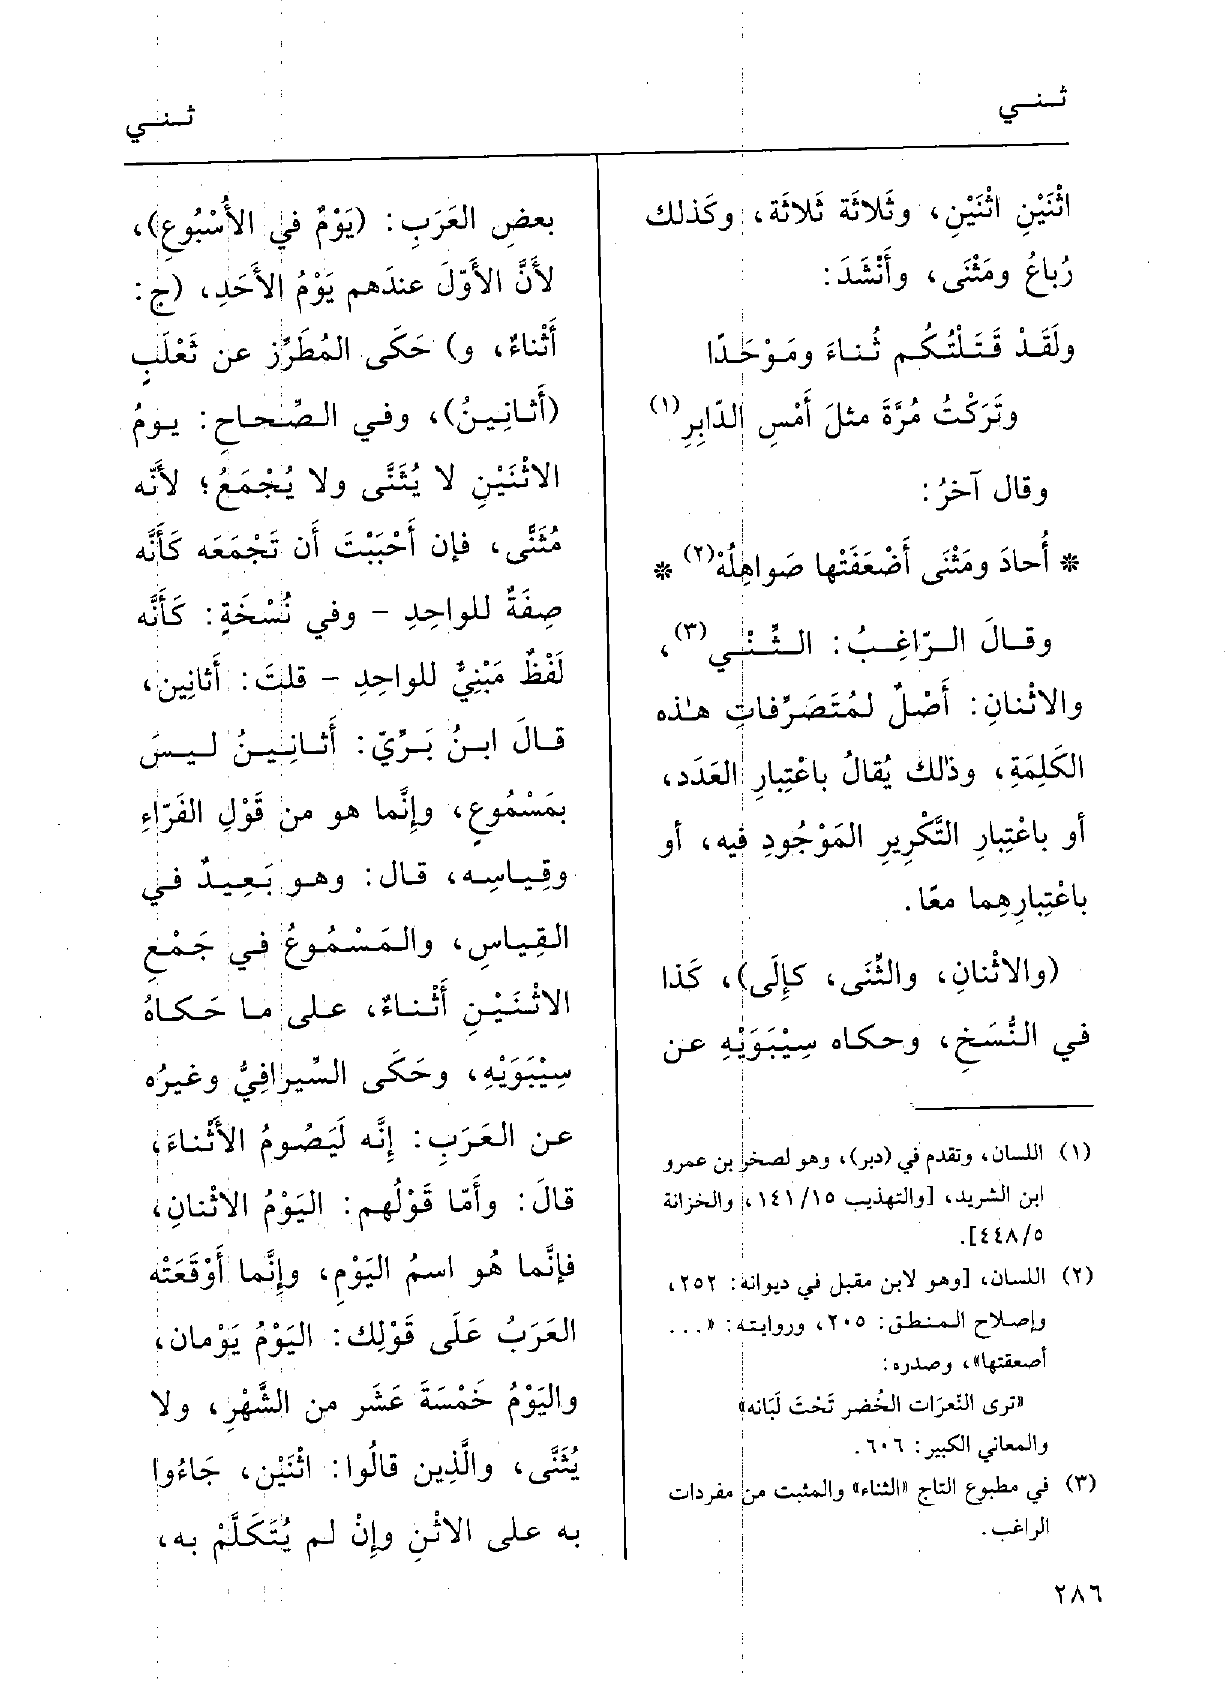 ثـنـي
ثـنـي
اثْنَيْنِ اثْنَيْنِ، وثَلاثَة ثَلاثَة، وكَذلك
رُباعُ ومَثْنَى، وأَنْشَدَ:
ولَقَدْ قَتَلْتُكُم ثُناءَ ومَوْحَدًا
وتَرَكْتُ مُرَّةَ مثلَ أَمْسِ الدّابِرِ(١)
وقال آخرُ:
* أُحادَ ومَثْنَى أَضْعَفَتْها صَواهِلُهْ(٢) *
وقـالَ الـرّاغِـبُ: الـثِّـنْـي(٣)،
والاثْنانِ: أَصْلٌ لمُتَصَرِّفاتِ هـٰذه
الكَلِمَةِ، وذٰلك يُقالُ باعْتِبارِ العَدَد،
أو باعْتِبارِ التَّكْرِيرِ المَوْجُودِ فيه، أو
باعْتِبارِهِما معًا.
(والاثْنانِ، والثِّنَى، كإِلَى)، كَذا
في النُّسَخِ، وحكاه سِيْبَوَيْهِ عن
(١) اللسان، وتقدم في (دبر)، وهو لصخر بن عمرو
ابن الشريد، [والتهذيب ١٤١/١٥، والخزانة
٤٤٨/٥].
(٢) اللسان، [وهو لابن مقبل في ديوانه: ٢٥٢،
وإصلاح المنطق: ٢٠٥، وروايته: «...
أصعقتها»، وصدره:
«ترى النّعرَات الخُضر تَحْتَ لَبَانه»
والمعاني الكبير: ٦٠٦.
(٣) في مطبوع التاج «الثناء» والمثبت من مفردات
الراغب.
بعضِ العَرَبِ: (يَوْمٌ في الأُسْبُوعِ)،
لأَنَّ الأَوّلَ عندَهم يَوْمُ الأَحَدِ، (ج:
أَثْناءٌ، و) حَكَى المُطَرِّز عن ثَعْلَبٍ
(أَثانِينُ)، وفي الصِّحاحِ: يومُ
الاثْنَيْنِ لا يُثَنَّى ولا يُجْمَعُ؛ لأَنّه
مُثَنًّى، فإن أَحْبَبْتَ أَن تَجْمَعَه كَأَنَّه
صِفَةٌ للواحِدِ - وفي نُسْخَةٍ: كَأَنَّه
لَفْظٌ مَبْنِيٌّ للواحِدِ - قلتَ: أَثانِين،
قـالَ ابـنُ بَـرِّيّ: أَثـانِـيـنُ لـيـسَ
بمَسْمُوعٍ، وإِنَّما هو من قَوْلِ الفَرّاءِ
وقِياسِه، قال: وهو بَعِيدٌ في
القِياسِ، والمَسْمُوعُ في جَمْعِ
الاثْنَيْنِ أَثْناءٌ، على ما حَكاهُ
سِيْبَوَيْهِ، وحَكَى السِّيرافِيُّ وغيرُه
عن العَرَبِ: إِنَّه لَيَصُومُ الأَثْناءَ،
قالَ: وأَمّا قَوْلُهم: اليَوْمُ الاثْنانِ،
فإنَّما هُو اسمُ اليَوْمِ، وإِنَّما أَوْقَعَتْه
العَرَبُ عَلَى قَوْلِك: اليَوْمُ يَوْمان،
واليَوْمُ خَمْسَةَ عَشَر من الشَّهْرِ، ولا
يُثَنَّى، والَّذِين قالُوا: اثْنَيْن، جَاءُوا
به على الاثْنِ وإِنْ لم يُتَكَلَّمْ به،
٢٨٦